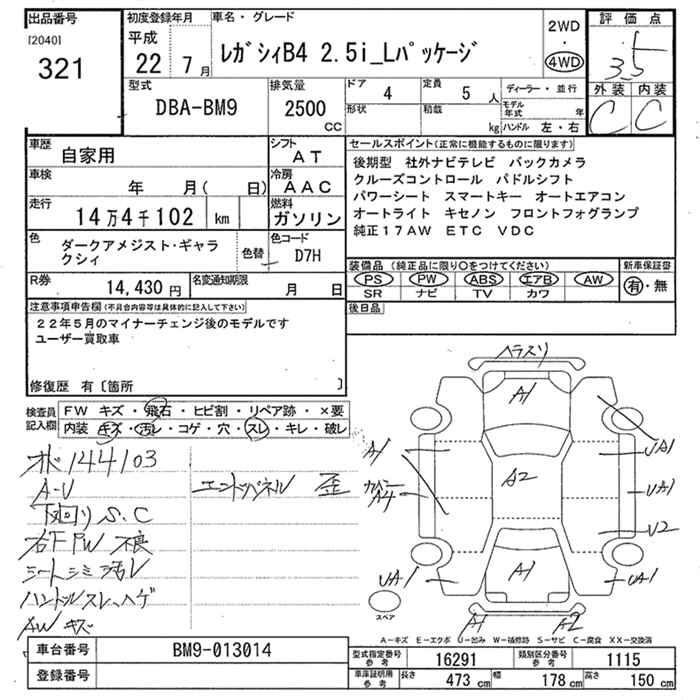 出品番号 初度登録年月 車名・グレード 2WD・4WD 評価点
[2040] 321 平成 22年 7月 レガシィB4 2.5i_Lパッケージ 3.5
型式 排気量 ドア 定員 ディーラー・並行 外装 内装
DBA-BM9 2500CC 4 5人 モデル年式 年 C C
形状 積載 kg ハンドル 左・右
車歴 自家用 シフト AT セールスポイント(正常に機能するものに限ります)
車検 年 月(日) 冷房 AAC 後期型 社外ナビテレビ バックカメラ
クルーズコントロール パドルシフト
走行 14万4千102 km 燃料 ガソリン パワーシート スマートキー オートエアコン
オートライト キセノン フロントフォグランプ
純正17AW ETC VDC
色 ダークアメジスト・ギャラクシィ 色替 色コード D7H
装備品(純正品に限り○をつけてください) 新車保証書
R券 14,430円 名変通知期限 月 日 PS PW ABS エアB AW 有・無
SR ナビ TV カワ
注意事項申告欄(不具合内容等は具体的に記入して下さい) 後日品
22年5月のマイナーチェンジ後のモデルです
ユーザー買取車
修復歴 有〔箇所 〕
検査員記入欄 FW キズ・飛石・ヒビ割・リペア跡・×要
内装 キズ・汚レ・コゲ・穴・スレ・キレ・破レ
ヘラスリ
A1
オド144103
A-U
エンドパネル 歪
下廻りS.C
右F PW 不良
シートシミ汚レ
ハンドルスレ、ハゲ
AWキズ
A1 UA1
A2
A4 UA1
U2
UA1 A1 UA1
スペア
A1 A2
A-キズ E-エクボ U-凹み W-補修跡 S-サビ C-腐食 XX-交換済
車台番号 BM9-013014 型式指定番号参考 16291 類別区分番号参考 1115
登録番号 車庫証明用参考 長さ 473cm 幅 178cm 高さ 150cm